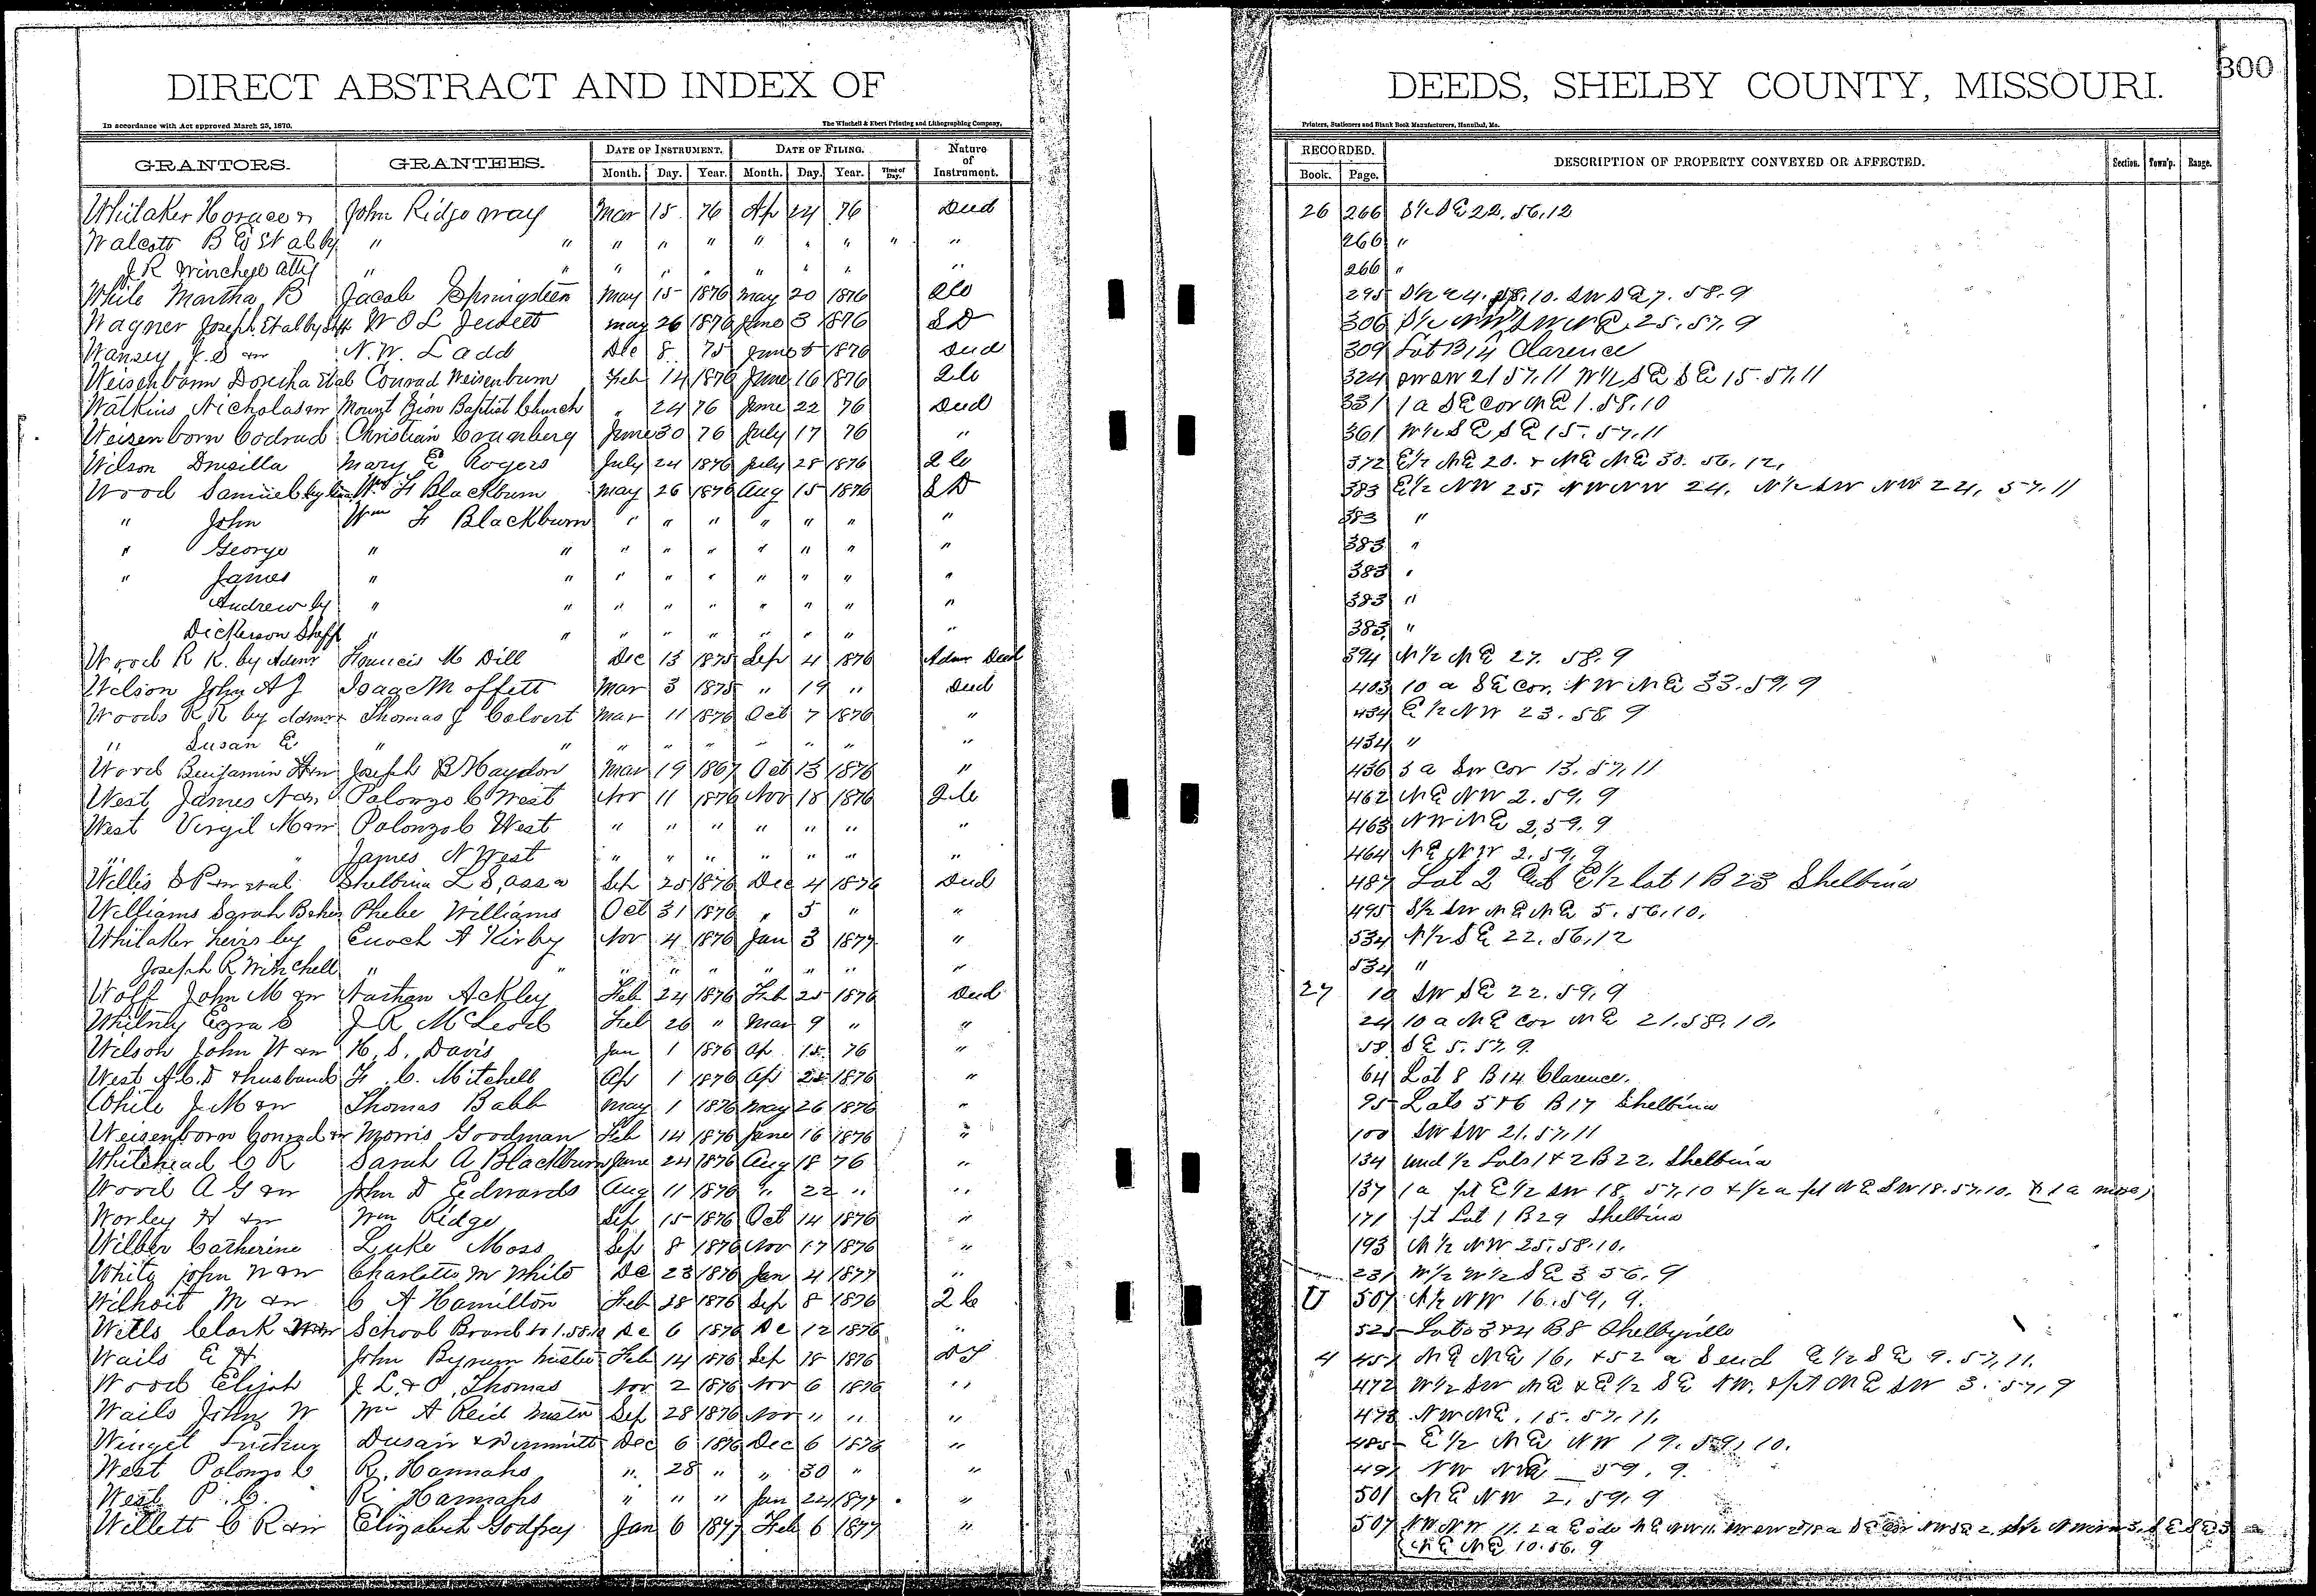 300
DIRECT ABSTRACT AND INDEX OF DEEDS, SHELBY COUNTY, MISSOURI.
In accordance with Act approved March 25, 1870. The Winchell & Ebert Printing and Lithographing Company, Printers, Stationers and Blank Book Manufacturers, Hannibal, Mo.
GRANTORS. GRANTEES. DATE OF INSTRUMENT. DATE OF FILING. Nature of Instrument. RECORDED. DESCRIPTION OF PROPERTY CONVEYED OR AFFECTED. Section. Town'p. Range.
Month. Day. Year. Month. Day. Year. Time of Day. Book. Page.
Whitaker Horace John Ridgeway Mar 15 76 Ap 24 76 Deed 26 266 S½ SE 22. 56. 12
Walcott B E et al by " " " " " " " " " " 266 "
J R Winchell atty " " " " " " " " " 266 "
White Martha B Jacob Springsteen May 15 1876 May 20 1876 2C 295 58. 10. SW SE 7. 58. 9
Wagner Joseph et al by Shff W O L Jewett May 26 1876 June 3 1876 SD 306 SW NE. 25. 57. 9
Wansey J. S & w N. W. Ladd Dec 8 75 June 5 1876 Deed 309 Lot B 14 Clarence
Weisenborn et al Conrad Weisenburn Feb 14 1876 June 16 1876 2C 324 SW SW 21 57. 11 W½ SE SE 15. 57. 11
Watkins Nicholas & w Mount Zion Baptist Church " 24 76 June 22 76 Deed 331 1 a SE cor NE 1. 58. 10
Weisenborn Codrud Christian June 30 76 July 17 76 " 361 W½ SE SE 15. 57. 11
Wilson Drusilla Mary E Rogers July 24 1876 July 28 1876 2C 372 E½ NE 20. & NE NE 30. 56. 12.
Wood Samuel by Wm F Blackburn May 26 1876 Aug 15 1876 SD 383 E½ NW 25. NW NW 24. N½ SW NW 24. 57. 11
" John Wm F Blackburn " " " " " " " 383 "
" George " " " " " " " " " 383 "
" James " " " " " " " " " 383 "
Andrew by " " " " " " " " " 383 "
Dickerson Shff " " " " " " " " " 383 "
Wood R K. by Admr Francis M Dill Dec 13 1875 Sep 4 1876 Admr Deed 394 N½ NE 27. 58. 9
Wilson John A J Isaac Moffett Mar 3 1875 " 19 " Deed 403 10 a SE cor. NW NE 33. 59. 9
Woods R R by Admr Thomas J Calvert Mar 11 1876 Oct 7 1876 " 434 E½ NW 23. 58 9
" Susan E " " " " " " " " " 434 "
Wood Benjamin Joseph B Haydon Mar 19 1867 Oct 13 1876 " 436 3 a SW cor 13. 57. 11
West James N Polonzo C West Nov 11 1876 Nov 18 1876 2C 462 NE NW 2. 59. 9
West Virgil M & w Polonzo C West " " " " " " " 463 NW NE 2. 59. 9
" " James N West " " " " " " " 464 NE NW 2. 59. 9
Willis S P & w et al Shelbina L S, assa Sep 25 1876 Dec 4 1876 Deed 487 Lot 2 E½ lot 1 B 23 Shelbina
Williams Sarah B Phebe Williams Oct 31 1876 " 5 " " 495 S½ SW NE NE 5. 56. 10.
Whitaker heirs by Enoch A Kirby Nov 4 1876 Jan 3 1877 " 534 N½ SE 22. 56. 12
Joseph R Winchell " " " " " " " " " 534 "
Wolf John M & w Nathan Ackley Feb 24 1876 Feb 25 1876 Deed 27 10 SW SE 22. 59. 9
Whitney Ezra S J R McLeod Feb 26 " Mar 9 " " 24 10 a NE cor NE 21. 58. 10.
Wilson John W & w H. S. Davis Jan 1 1876 Ap 15 76 " 58 SE 5. 57. 9.
West A. C. D & husband F. C. Mitchell Ap 1 1876 Ap 25 1876 " 64 Lot 8 B 14 Clarence.
White J M & w Thomas Babb May 1 1876 May 26 1876 " 95 Lots 5 & 6 B 17 Shelbina
Weisenborn Conrad & w Morris Goodman Feb 14 1876 June 16 1876 " 100 SW SW 21. 57. 11
Whitehead C R Sarah A Blackburn June 24 1876 Aug 18 76 " 134 und ½ Lots 1 & 2 B 22. Shelbina
Wood A G & w John D Edwards Aug 11 1876 " 22 " " 137 1 a pt E½ SW 18. 57. 10 & ½ a pt NE SW 18. 57. 10. & 1 a more
Worley H & w Wm Ridge Sep 15 1876 Oct 14 1876 " 171 pt Lot 1 B 29 Shelbina
Wilber Catherine Luke Moss Sep 8 1876 Nov 17 1876 " 193 N½ NW 25. 58. 10.
White John N & w Charlotte M White De 23 1876 Jan 4 1877 " 231 W½ W½ SE 3 56. 9
Wilhoit M & w C A Hamilton Feb 28 1876 Sep 8 1876 2C U 507 N½ NW 16. 59. 9.
Wills Clark School Board to 1. 58. 10 De 6 1876 De 12 1876 " 525 Lots 3 & 4 B 8 Shelbyville
Wails E H John Bynum trustee Feb 14 1876 Sep 18 1876 DT 4 457 NE NE 16. & 52 a S end E½ SE 9. 57. 11.
Wood Elijah J. L. & O. Thomas Nov 2 1876 Nov 6 1876 " 472 W½ SW NE & E½ SE NW. & pt NE SW 3. 57. 9
Wails John W Wm A Reid trustee Sep 28 1876 Nov " " " 478 NW NE. 15. 57. 11.
Winget Dec 6 1876 Dec 6 1876 " 485 E½ NE NW 19. 59. 10.
West Polonzo C R. Hannahs " 28 " " 30 " " 491 NW NE 59. 9.
West P. C. R. Hannahs " " " Jan 24 1877 " 501 NE NW 2. 59. 9
Willett C R & w Elizabeth Godfrey Jan 6 1877 Feb 6 1877 " 507 NW NW 11. 2 a E side NE NW 11.
NE NE 10. 56. 9